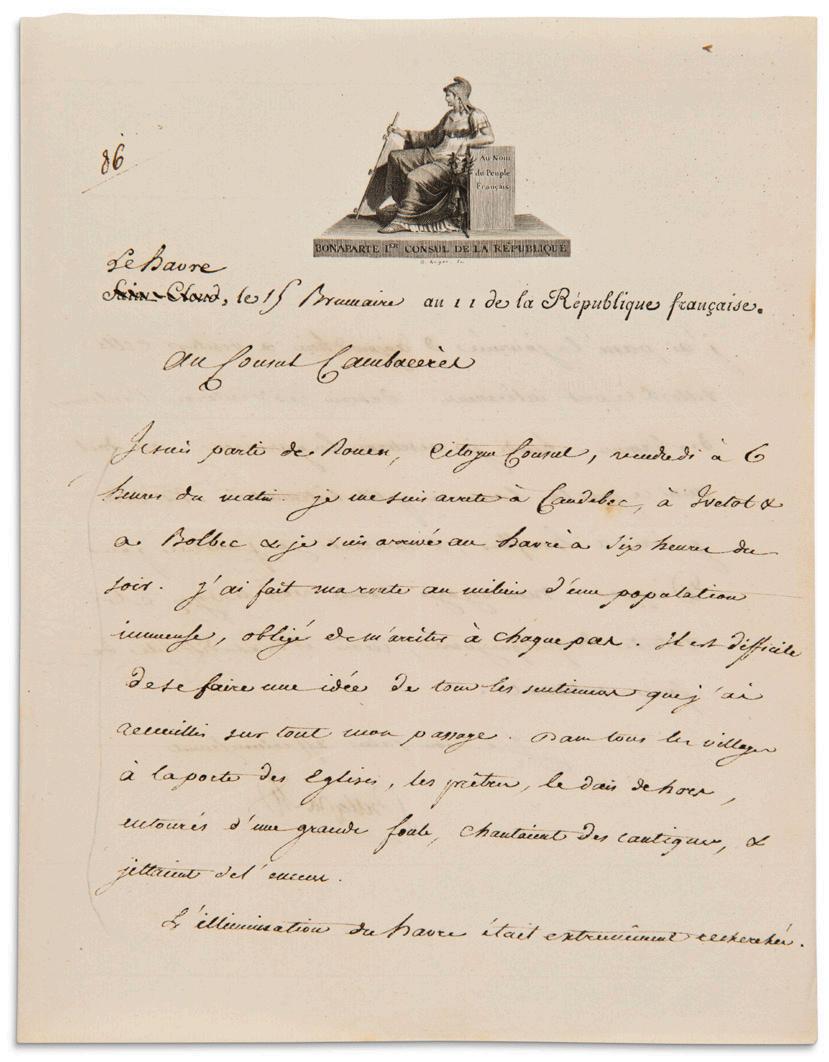 86
Au Nom
du Peuple
Français
BONAPARTE I.ER CONSUL DE LA RÉPUBLIQUE
Le havre
Saint-Cloud, le 15 Brumaire an 11 de la République française.
Au Consul Cambacérès
Je suis parti de Rouen, Citoyen Consul, vendredi à 6
heures du matin. je me suis arrêté à Caudebec, à Yvetot &
a Bolbec & je suis arrivé au havre à six heures du
soir. J'ai fait ma route au milieu d'une population
immense, obligé de m'arrêter à chaque pas. Il est difficile
de se faire une idée de tous les sentimens que j'ai
recueillis sur tout mon passage. Dans tous les villages
à la porte des Eglises, les prêtres, le dais dehors,
entourés d'une grande foule, chantaient des cantiques, &
jettaient de l'encens.
L'illumination du havre était extrêmement recherchée.